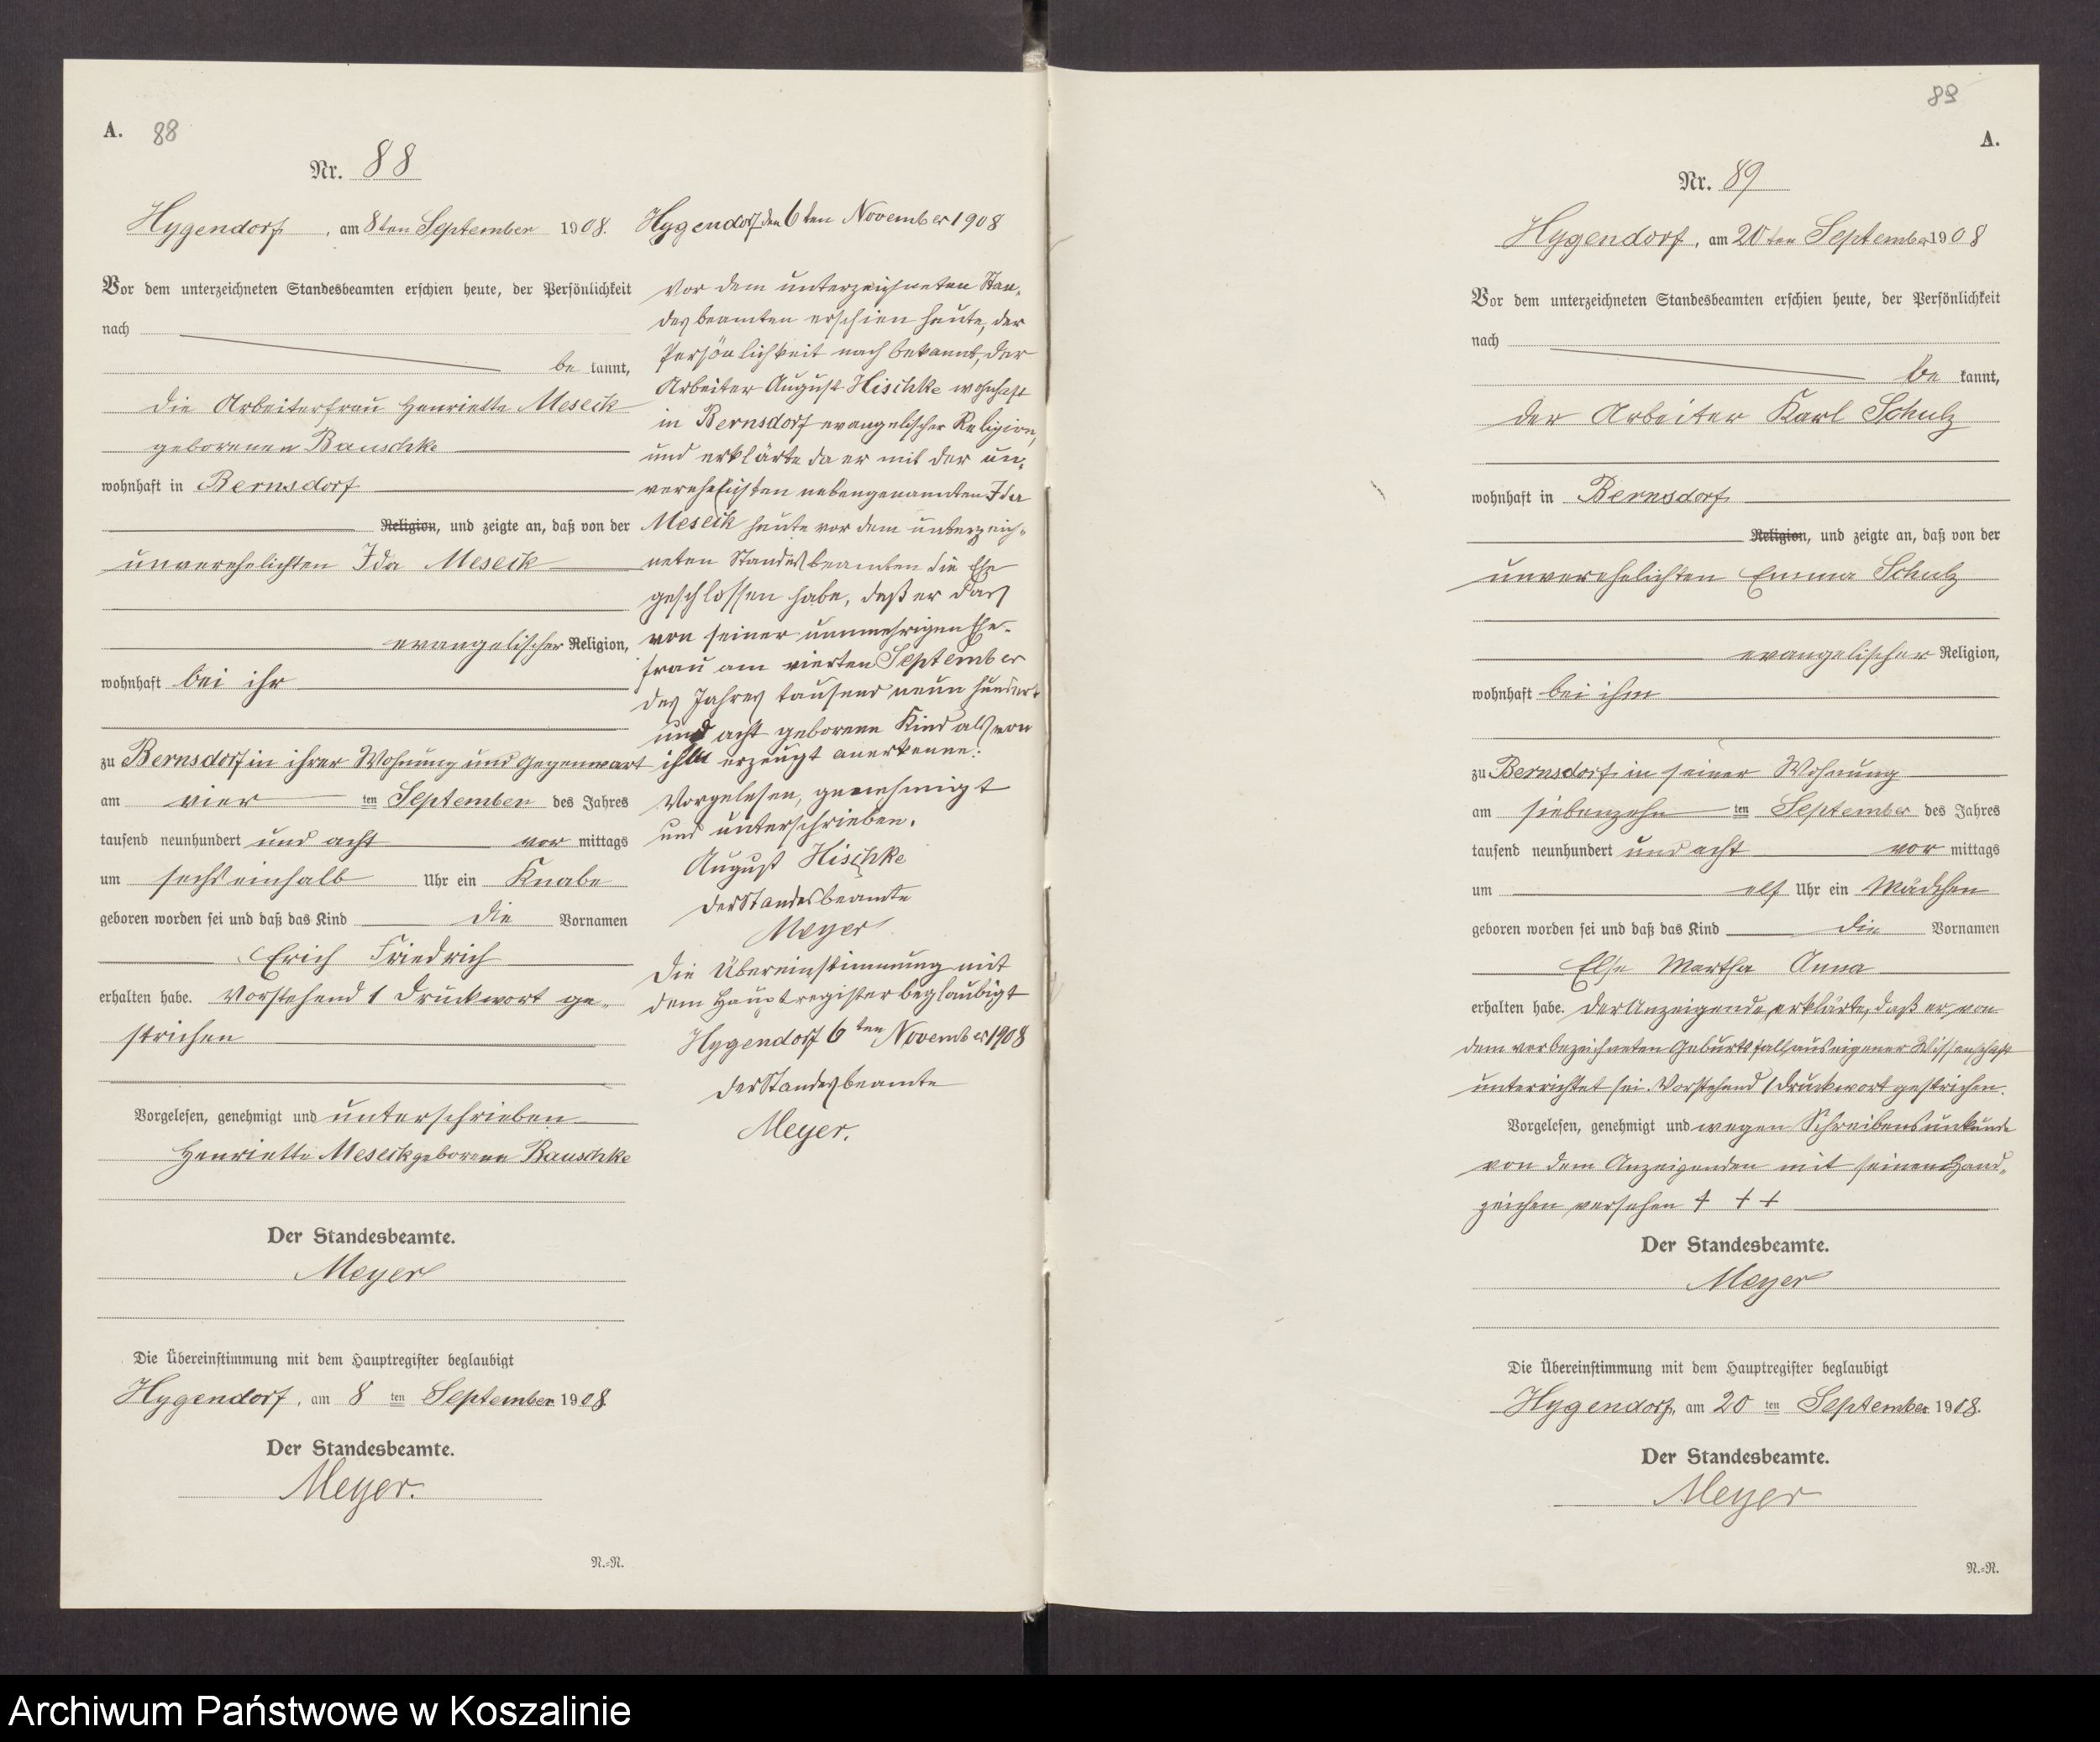 A. 88
Nr. 88
Hygendorf, am 8ten September 1908.
Vor dem unterzeichneten Standesbeamten erschien heute, der Persönlichkeit
nach
be kannt,
die Arbeiterfrau Henriette Meseck
geborenen Bauschke
wohnhaft in Bernsdorf
Religion, und zeigte an, daß von der
unverehelichten Ida Meseck
evangelischer Religion,
wohnhaft bei ihr
zu Bernsdorf in ihrer Wohnung und Gegenwart
am vier ten September des Jahres
tausend neunhundert und acht vor mittags
um sechs einhalb Uhr ein Knabe
geboren worden sei und daß das Kind die Vornamen
Erich Friedrich
erhalten habe. Vorstehend 1 Druckwort ge-
strichen
Vorgelesen, genehmigt und unterschrieben
Henriette Meseck geborene Bauschke
Der Standesbeamte.
Meyer
Die Übereinstimmung mit dem Hauptregister beglaubigt
Hygendorf, am 8 ten September 1908.
Der Standesbeamte.
Meyer.
N.=N.
Hygendorf den 6ten November 1908
Vor dem unterzeichneten Stan-
desbeamten erschien heute, der
Persönlichkeit nach bekannt, der
Arbeiter August Hischke wohnhaft
in Bernsdorf evangelischer Religion,
und erklärte da er mit der un-
verehelichten nebengenannten Ida
Meseck heute vor dem unterzeich-
neten Standesbeamten die Ehe
geschlossen habe, daß er das
von seiner nunmehrigen Ehe-
frau am vierten September
des Jahres tausend neun hundert
und acht geborene Kind als von
ihm erzeugt anerkenne.
Vorgelesen, genehmigt
und unterschrieben.
August Hischke
Der Standesbeamte
Meyer
Die Übereinstimmung mit
dem Hauptregister beglaubigt
Hygendorf 6ten November 1908
Der Standesbeamte
Meyer.
89
A.
Nr. 89
Hygendorf, am 20ten September 1908
Vor dem unterzeichneten Standesbeamten erschien heute, der Persönlichkeit
nach
be kannt,
der Arbeiter Karl Schulz
wohnhaft in Bernsdorf
Religion, und zeigte an, daß von der
unverehelichten Emma Schulz
evangelischer Religion,
wohnhaft bei ihm
zu Bernsdorf in seiner Wohnung
am siebenzehn ten September des Jahres
tausend neunhundert und acht vor mittags
um elf Uhr ein Mädchen
geboren worden sei und daß das Kind die Vornamen
Else Martha Anna
erhalten habe. Der Anzeigende erklärte, daß er von
dem vorbezeichneten Geburtsfall aus eigener Wissenschaft
unterrichtet sei. Vorstehend 1 Druckwort gestrichen.
Vorgelesen, genehmigt und wegen Schreibensunkunde
von dem Anzeigenden mit seinem Hand-
zeichen versehen + + +
Der Standesbeamte.
Meyer
Die Übereinstimmung mit dem Hauptregister beglaubigt
Hygendorf, am 20 ten September 1908.
Der Standesbeamte.
Meyer
N.=N.
Archiwum Państwowe w Koszalinie